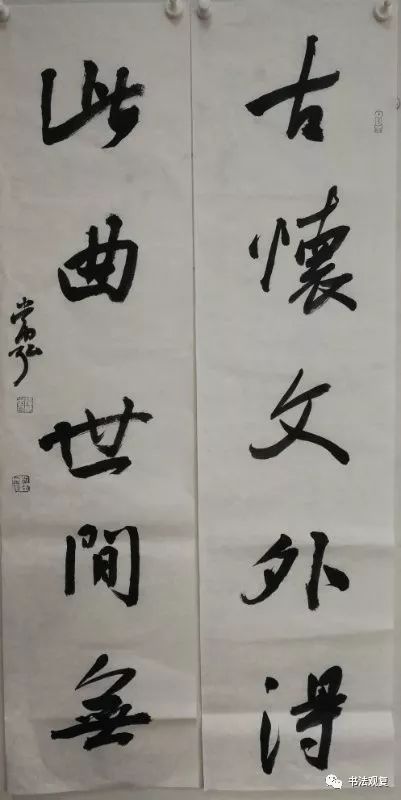 古懷文外得
此曲世間無
书法观复